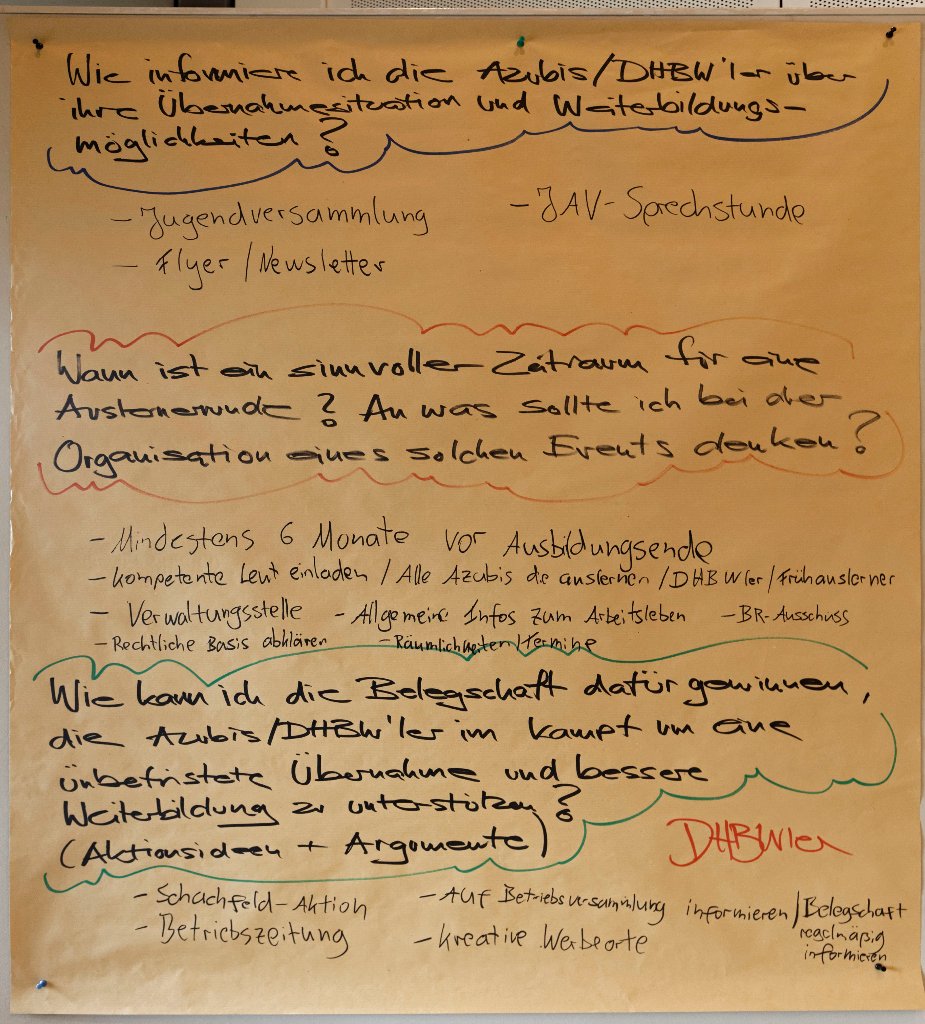 Wie informiere ich die Azubis/DHBW'ler über
ihre Übernahmesituation und Weiterbildungs-
möglichkeiten?
- Jugendversammlung
- JAV-Sprechstunde
- Flyer/Newsletter
Wann ist ein sinnvoller Zeitraum für eine
Auslernerrunde? An was sollte ich bei der
Organisation eines solchen Events denken?
- Mindestens 6 Monate vor Ausbildungsende
- kompetente Leut einladen / Alle Azubis die auslernen / DHBWler / Frühauslerner
- Verwaltungsstelle - Allgemeine Infos zum Arbeitsleben - BR-Ausschuss
- Rechtliche Basis abklären - Räumlichkeiten/Termine
Wie kann ich die Belegschaft dafür gewinnen,
die Azubis/DHBW'ler im kampf um eine
unbefristete Übernahme und bessere
Weiterbildung zu unterstützen?
(Aktionsideen + Argumente)
DHBWler
- Schachfeld-Aktion
- Auf Betriebsversammlung informieren / Belegschaft
regelmäßig
informieren
- Betriebszeitung
- kreative Werbeorte